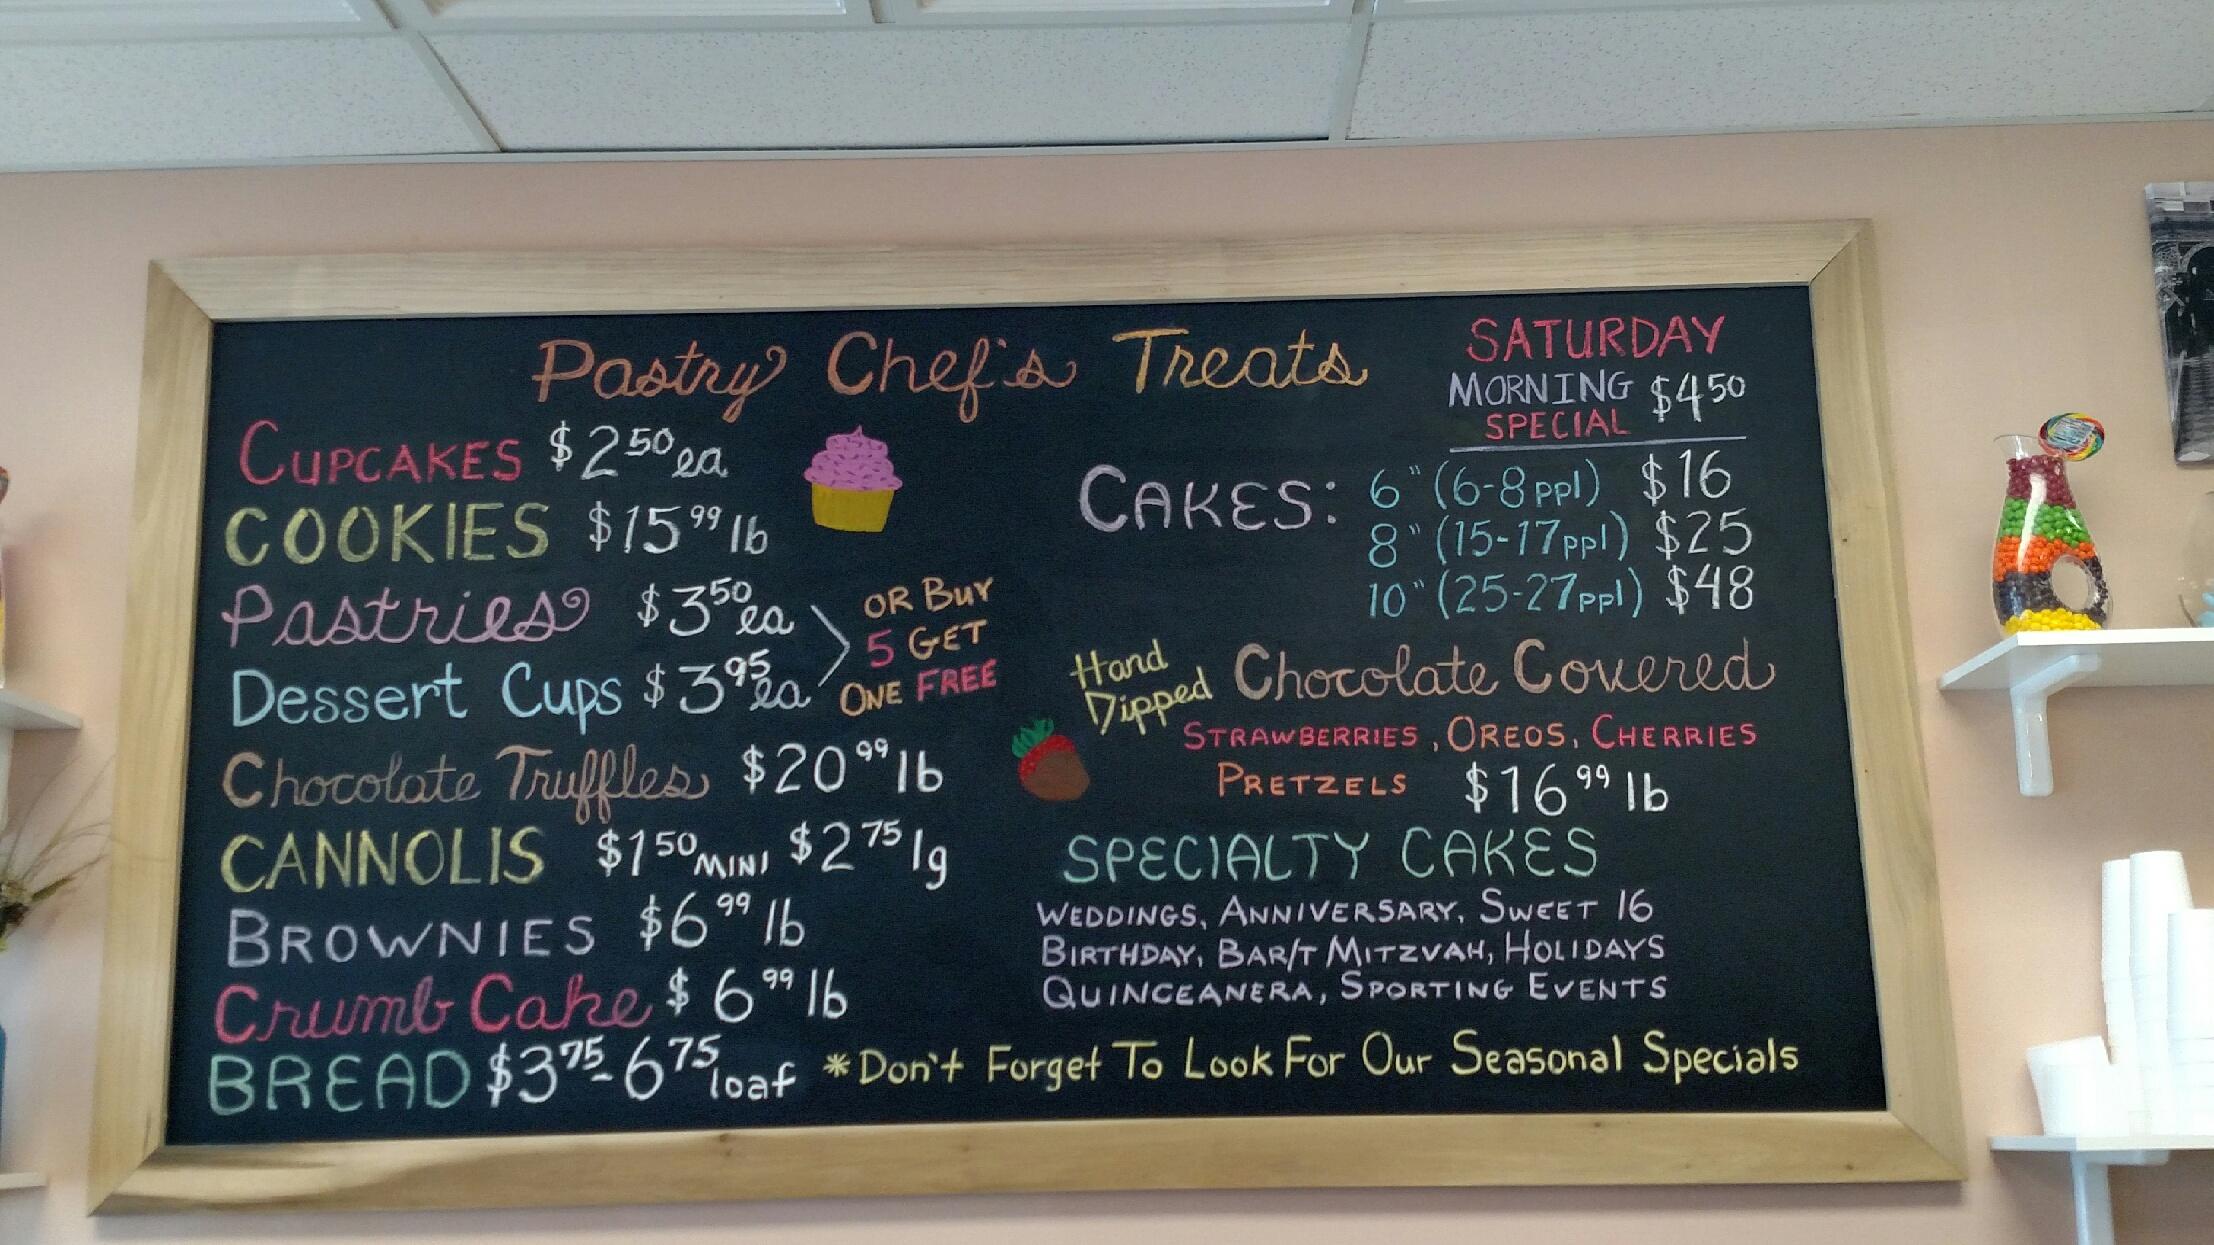 Pastry Chef's Treats
CUPCAKES $2.50 ea
COOKIES $15.99 lb
Pastries $3.50 ea
Dessert Cups $3.95 ea
OR BUY
5 GET
ONE FREE
Chocolate Truffles $20.99 lb
CANNOLIS $1.50 MINI $2.75 lg
BROWNIES $6.99 lb
Crumb Cake $6.99 lb
BREAD $3.75-6.75 loaf
SATURDAY
MORNING $4.50
SPECIAL
CAKES: 6" (6-8ppl) $16
8" (15-17ppl) $25
10" (25-27ppl) $48
Hand
Dipped
Chocolate Covered
STRAWBERRIES, OREOS, CHERRIES
PRETZELS $16.99 lb
SPECIALTY CAKES
WEDDINGS, ANNIVERSARY, SWEET 16
BIRTHDAY, BAR/T MITZVAH, HOLIDAYS
QUINCEANERA, SPORTING EVENTS
*Don't Forget To Look For Our Seasonal Specials